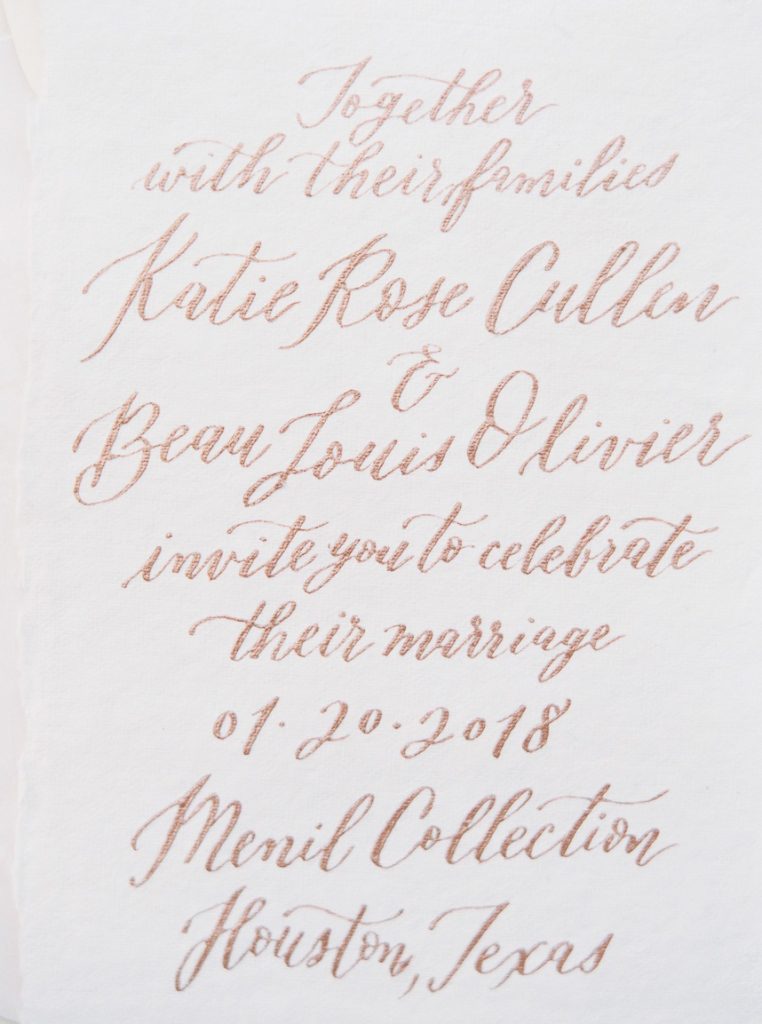 Together
with their families
Katie Rose Cullen
&
Beau Louis Olivier
invite you to celebrate
their marriage
01.20.2018
Menil Collection
Houston, Texas